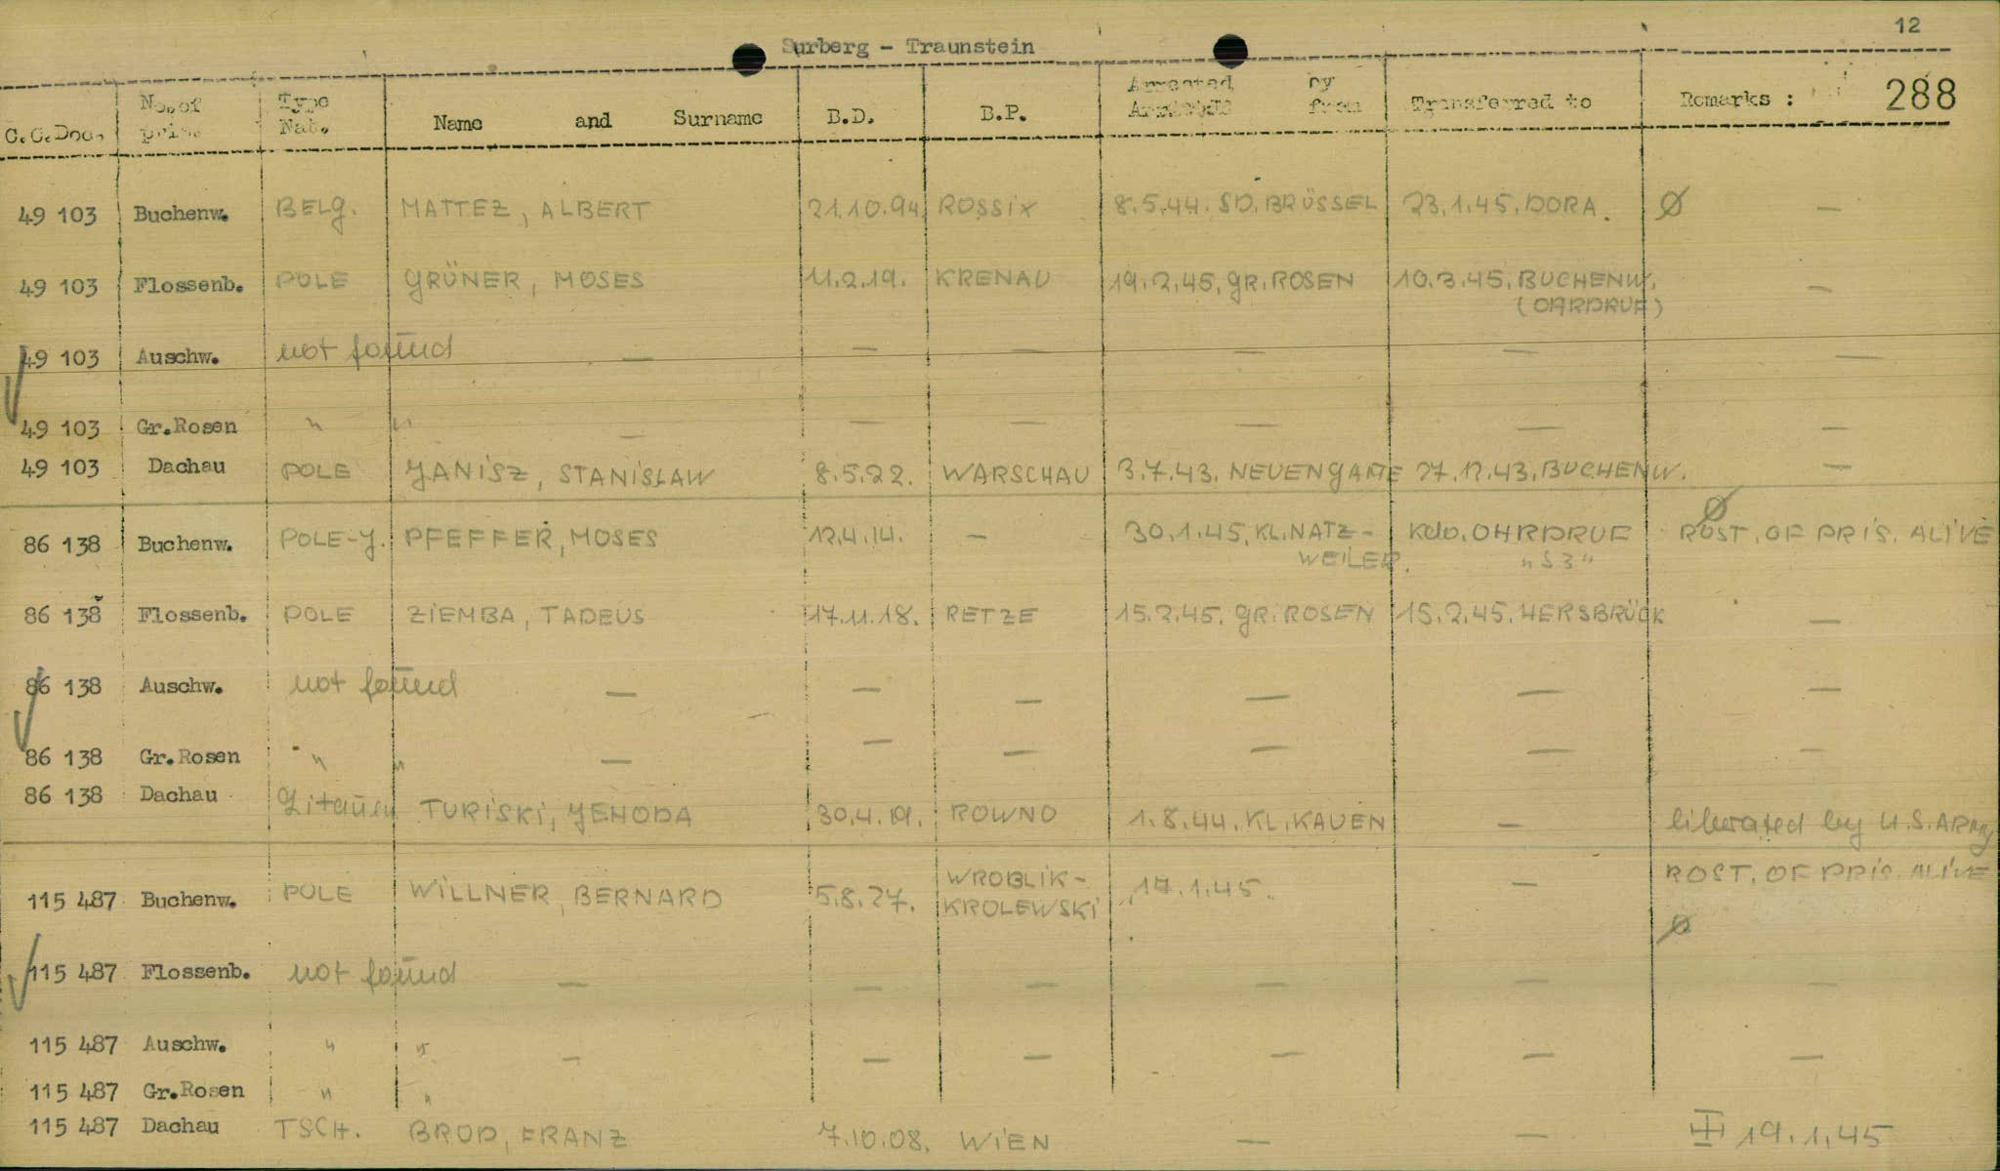 12
Surberg - Traunstein
288
C.C.Doc. No. of pris. Type Nat. Name and Surname B.D. B.P. Arrested by Arrived from Transferred to Remarks :
49 103 Buchenw. BELG. MATTEZ, ALBERT 21.10.94 ROSSIX 8.5.44. SD. BRÜSSEL 23.1.45, DORA. Ø —
49 103 Flossenb. POLE GRÜNER, MOSES 11.2.19. KRENAU 19.2.45, GR. ROSEN 10.3.45, BUCHENW. —
(OHRDRUF)
49 103 Auschw. not found — — — — — —
49 103 Gr.Rosen " " — — — — — —
49 103 Dachau POLE YANISZ, STANISŁAW 8.5.22. WARSCHAU 3.7.43. NEUENGAME 27.12.43, BUCHENW. —
Ø
86 138 Buchenw. POLE-Y. PFEFFER, MOSES 12.4.14. — 30.1.45, KL. NATZ- Kdo. OHRDRUF ROST. OF PRIS. ALIVE
WEILER. "S3"
86 138 Flossenb. POLE ZIEMBA, TADEUS 17.11.18. RETZE 15.2.45. GR. ROSEN 15.2.45. HERSBRÜCK —
86 138 Auschw. not found — — — — — —
86 138 Gr.Rosen " " — — — — — —
86 138 Dachau Litauen TURISKI, YEHODA 30.4.19. ROWNO 1.8.44. KL. KAUEN — liberated by U.S. ARMY
WROBLIK- ROST. OF PRIS. ALIVE
115 487 Buchenw. POLE WILLNER, BERNARD 5.8.27. KROLEWSKI 17.1.45. —
Ø
115 487 Flossenb. not found — — — — — —
115 487 Auschw. " " — — — — — —
115 487 Gr.Rosen " "
115 487 Dachau TSCH. BROD, FRANZ 7.10.08. WIEN — — 19.1.45